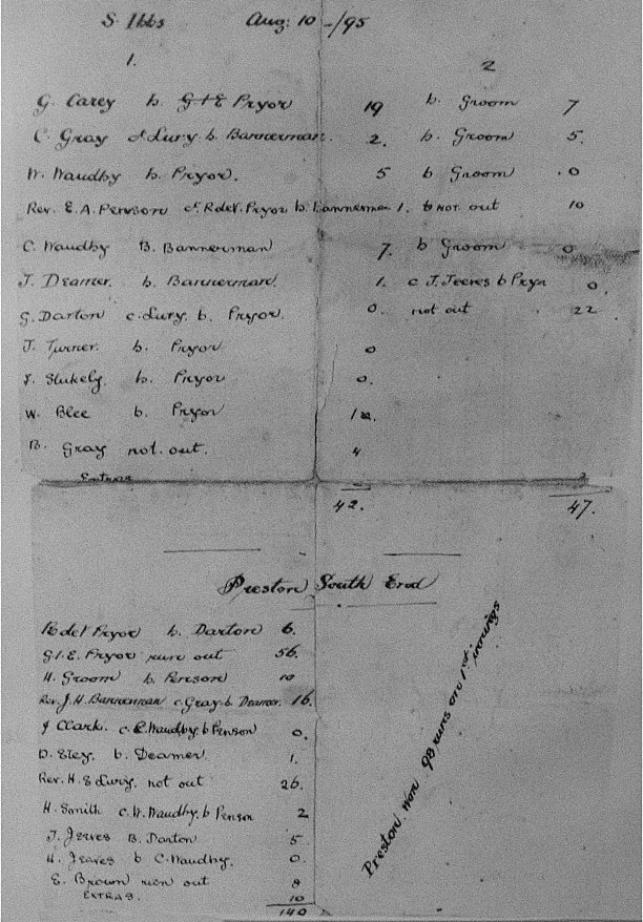 S. Ibbs Aug: 10 -/95
1. 2
G. Carey b. G+E Pryor 19 b. Groom 7
C. Gray c Lury. b. Bannerman. 2. b. Groom 5.
W. Waudby b. Pryor. 5 b Groom . 0
Rev. E.A. Penson c. R del. Pryor b. Bannerman 1. not out 10
C. Waudby B. Bannerman 7. b Groom 0
J. Deamer. b. Bannerman. 1. c J. Jeeves b Pryor 0.
G. Darton c. Lury. b. Pryor. 0. not out 22
J. Turner. b. Pryor 0
J. Stukely. b. Pryor 0.
W. Blee b. Pryor 1.
B. Gray not. out. 4
Extras
42. 47.
Preston South End
R del Pryor b. Darton 6.
G.I.E. Pryor run out 56.
H. Groom b Penson 10
Rev. J.H. Bannerman c. Gray. b Deamer. 16.
J Clark. c. C. Waudby. b Penson 0.
D. Sley. b. Deamer. 1.
Rev. H. S Lury. not out 26.
H. Smith c. W. Waudby. b Penson 2
J. Jeeves B. Darton 5
H. Jeaves b C. Waudby. 0.
E. Brown run out 8
EXTRAS. 10
140
Preston won 98 runs on 1st innings